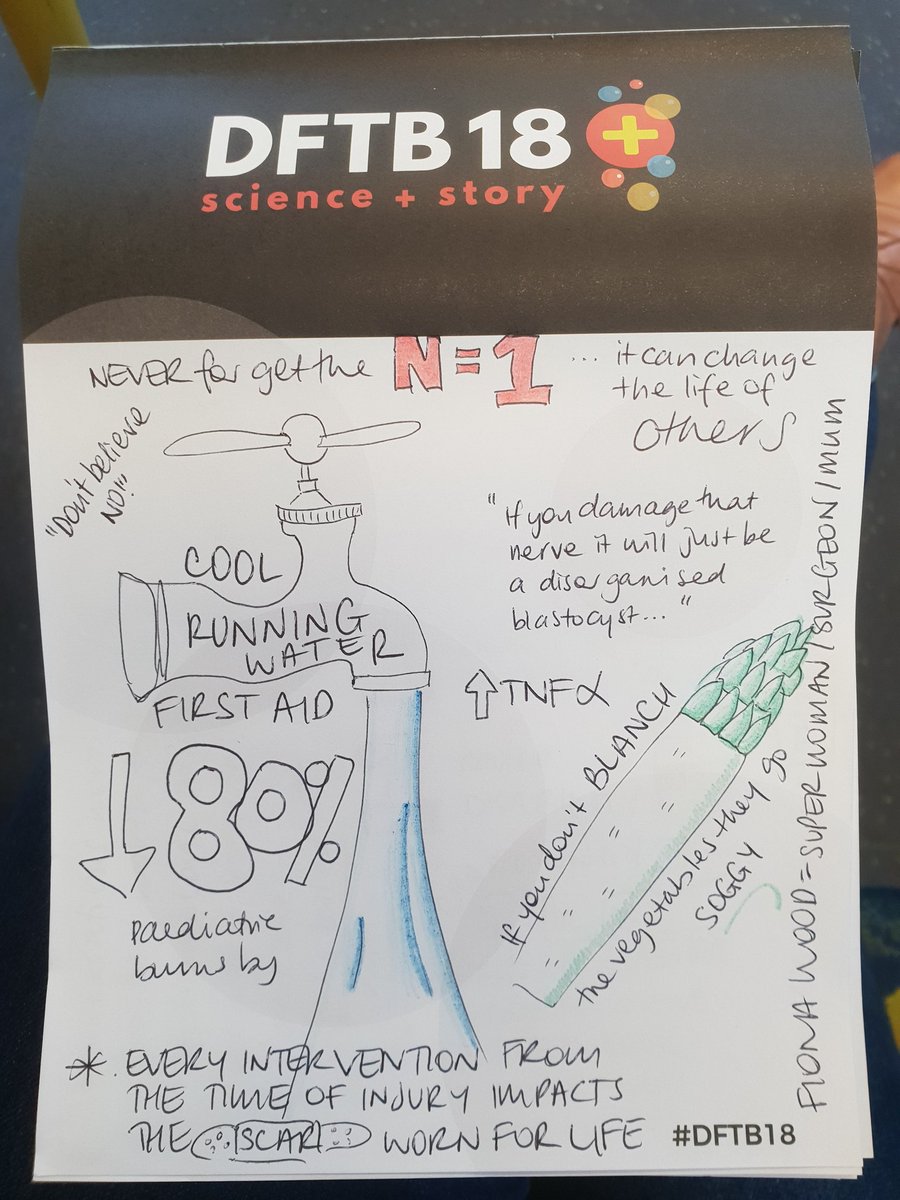 DFTB 18
science + story
NEVER forget the N=1 ... it can change
the life of
others
"Don't believe
NO!"
COOL
RUNNING
WATER
FIRST AID
"If you damage that
nerve it will just be
a disorganised
blastocyst..."
⇧TNFα
↓80%
paediatric
burns by
If you don't BLANCH
the vegetables they go
SOGGY
FIONA WOOD = SUPERWOMAN/SURGEON/MUM
* EVERY INTERVENTION FROM
THE TIME OF INJURY IMPACTS
THE SCAR WORN FOR LIFE #DFTB18